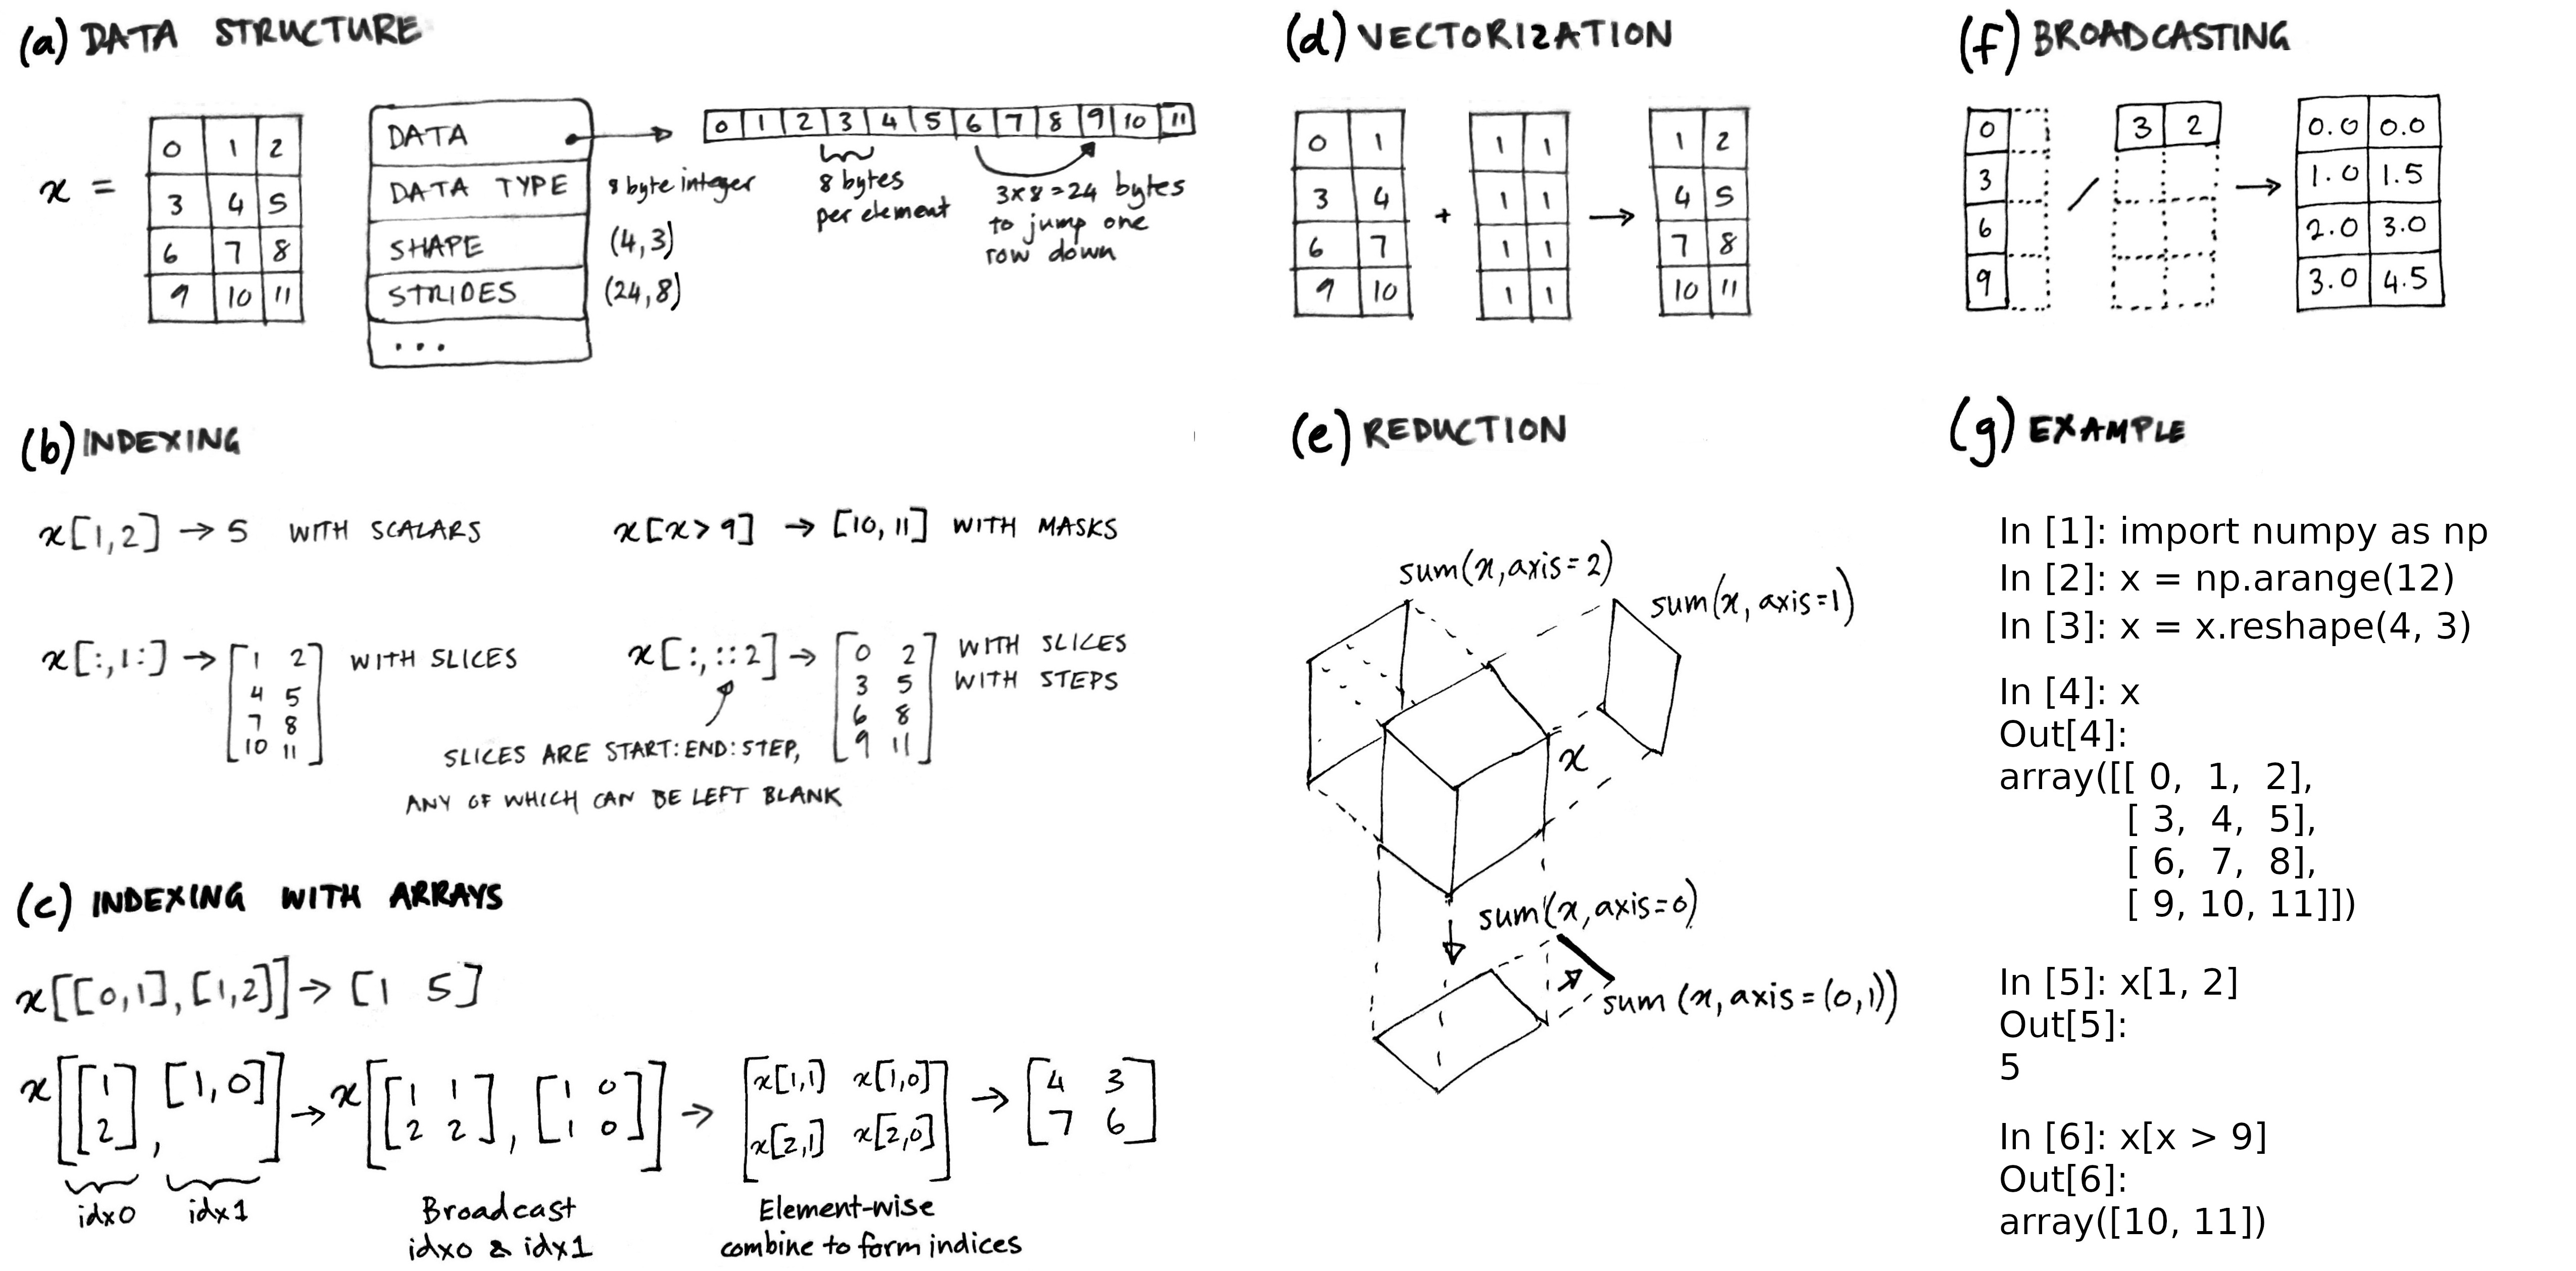 (a) DATA STRUCTURE
x =
0 1 2
3 4 5
6 7 8
9 10 11
DATA
DATA TYPE
SHAPE
STRIDES
...
8 byte integer
(4,3)
(24,8)
0 1 2 3 4 5 6 7 8 9 10 11
8 bytes
per element
3x8=24 bytes
to jump one
row down
(b) INDEXING
x[1,2] → 5 WITH SCALARS
x[x > 9] → [10, 11] WITH MASKS
x[:,1:] → [1 2 WITH SLICES
4 5
7 8
10 11]
x[:,::2] → [0 2 WITH SLICES
3 5 WITH STEPS
6 8
9 11]
SLICES ARE START:END:STEP,
ANY OF WHICH CAN BE LEFT BLANK
(c) INDEXING WITH ARRAYS
x[[0,1],[1,2]] → [1 5]
x[[1 2], [1,0]] → x[[1 1 2 2], [1 0 1 0]] → [x[1,1] x[1,0] x[2,1] x[2,0]] → [4 3 7 6]
idx0 idx1
Broadcast
idx0 & idx1
Element-wise
combine to form indices
(d) VECTORIZATION
0 1
3 4
6 7
9 10
+
1 1
1 1
1 1
1 1
→
1 2
4 5
7 8
10 11
(e) REDUCTION
sum(x,axis=2)
sum(x, axis=1)
x
sum(x,axis=0)
sum (x, axis = (0,1))
(f) BROADCASTING
0
3
6
9
/
3 2
→
0.0 0.0
1.0 1.5
2.0 3.0
3.0 4.5
(g) EXAMPLE
In [1]: import numpy as np
In [2]: x = np.arange(12)
In [3]: x = x.reshape(4, 3)
In [4]: x
Out[4]:
array([[ 0, 1, 2],
[ 3, 4, 5],
[ 6, 7, 8],
[ 9, 10, 11]])
In [5]: x[1, 2]
Out[5]:
5
In [6]: x[x > 9]
Out[6]:
array([10, 11])